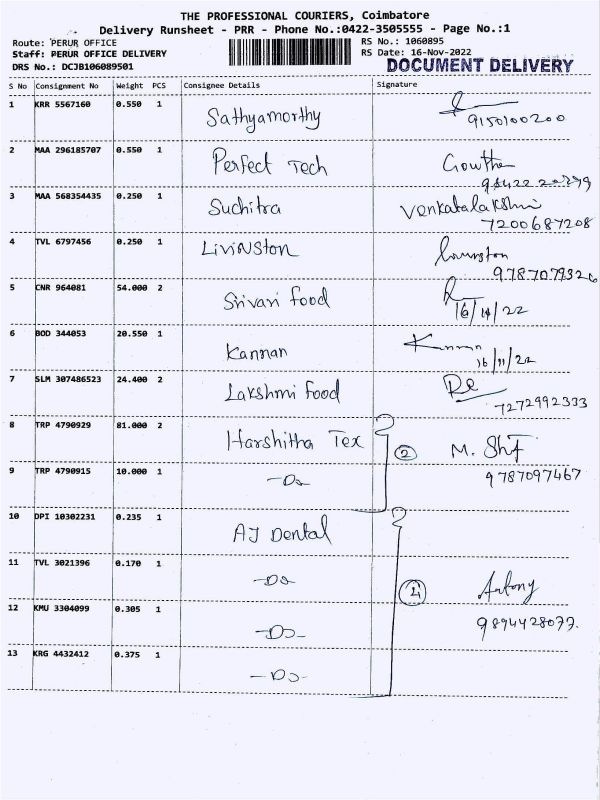 THE PROFESSIONAL COURIERS, Coimbatore
Delivery Runsheet - PRR - Phone No.:0422-3505555 - Page No.:1
Route: PERUR OFFICE
RS No.: 1060895
Staff: PERUR OFFICE DELIVERY
RS Date: 16-Nov-2022
DRS No.: DCJB106089501
DOCUMENT DELIVERY
S No Consignment No Weight PCS Consignee Details Signature
1 KRR 5567160 0.550 1 Sathyamorthy
9150100200
2 MAA 296185707 0.550 1 Perfect Tech Gowtham
3 MAA 568354435 0.250 1 Suchitra Venkatalakshmi
7200687208
4 TVL 6797456 0.250 1 LiviNSton
9787079326
5 CNR 964081 54.000 2 Srivari food
6 BOD 344053 20.550 1 Kannan
16/11/22
7 SLM 307486523 24.400 2 Lakshmi food
7272992333
8 TRP 4790929 81.000 2 Harshitha Tex 2 M.
9787097467
9 TRP 4790915 10.000 1 -Do-
10 DPI 10302231 0.235 1 AJ Dental
11 TVL 3021396 0.170 1 -Do- 4 Antony
12 KMU 3304099 0.305 1 -Do- 9894428077.
13 KRG 4432412 0.375 1 -Do-